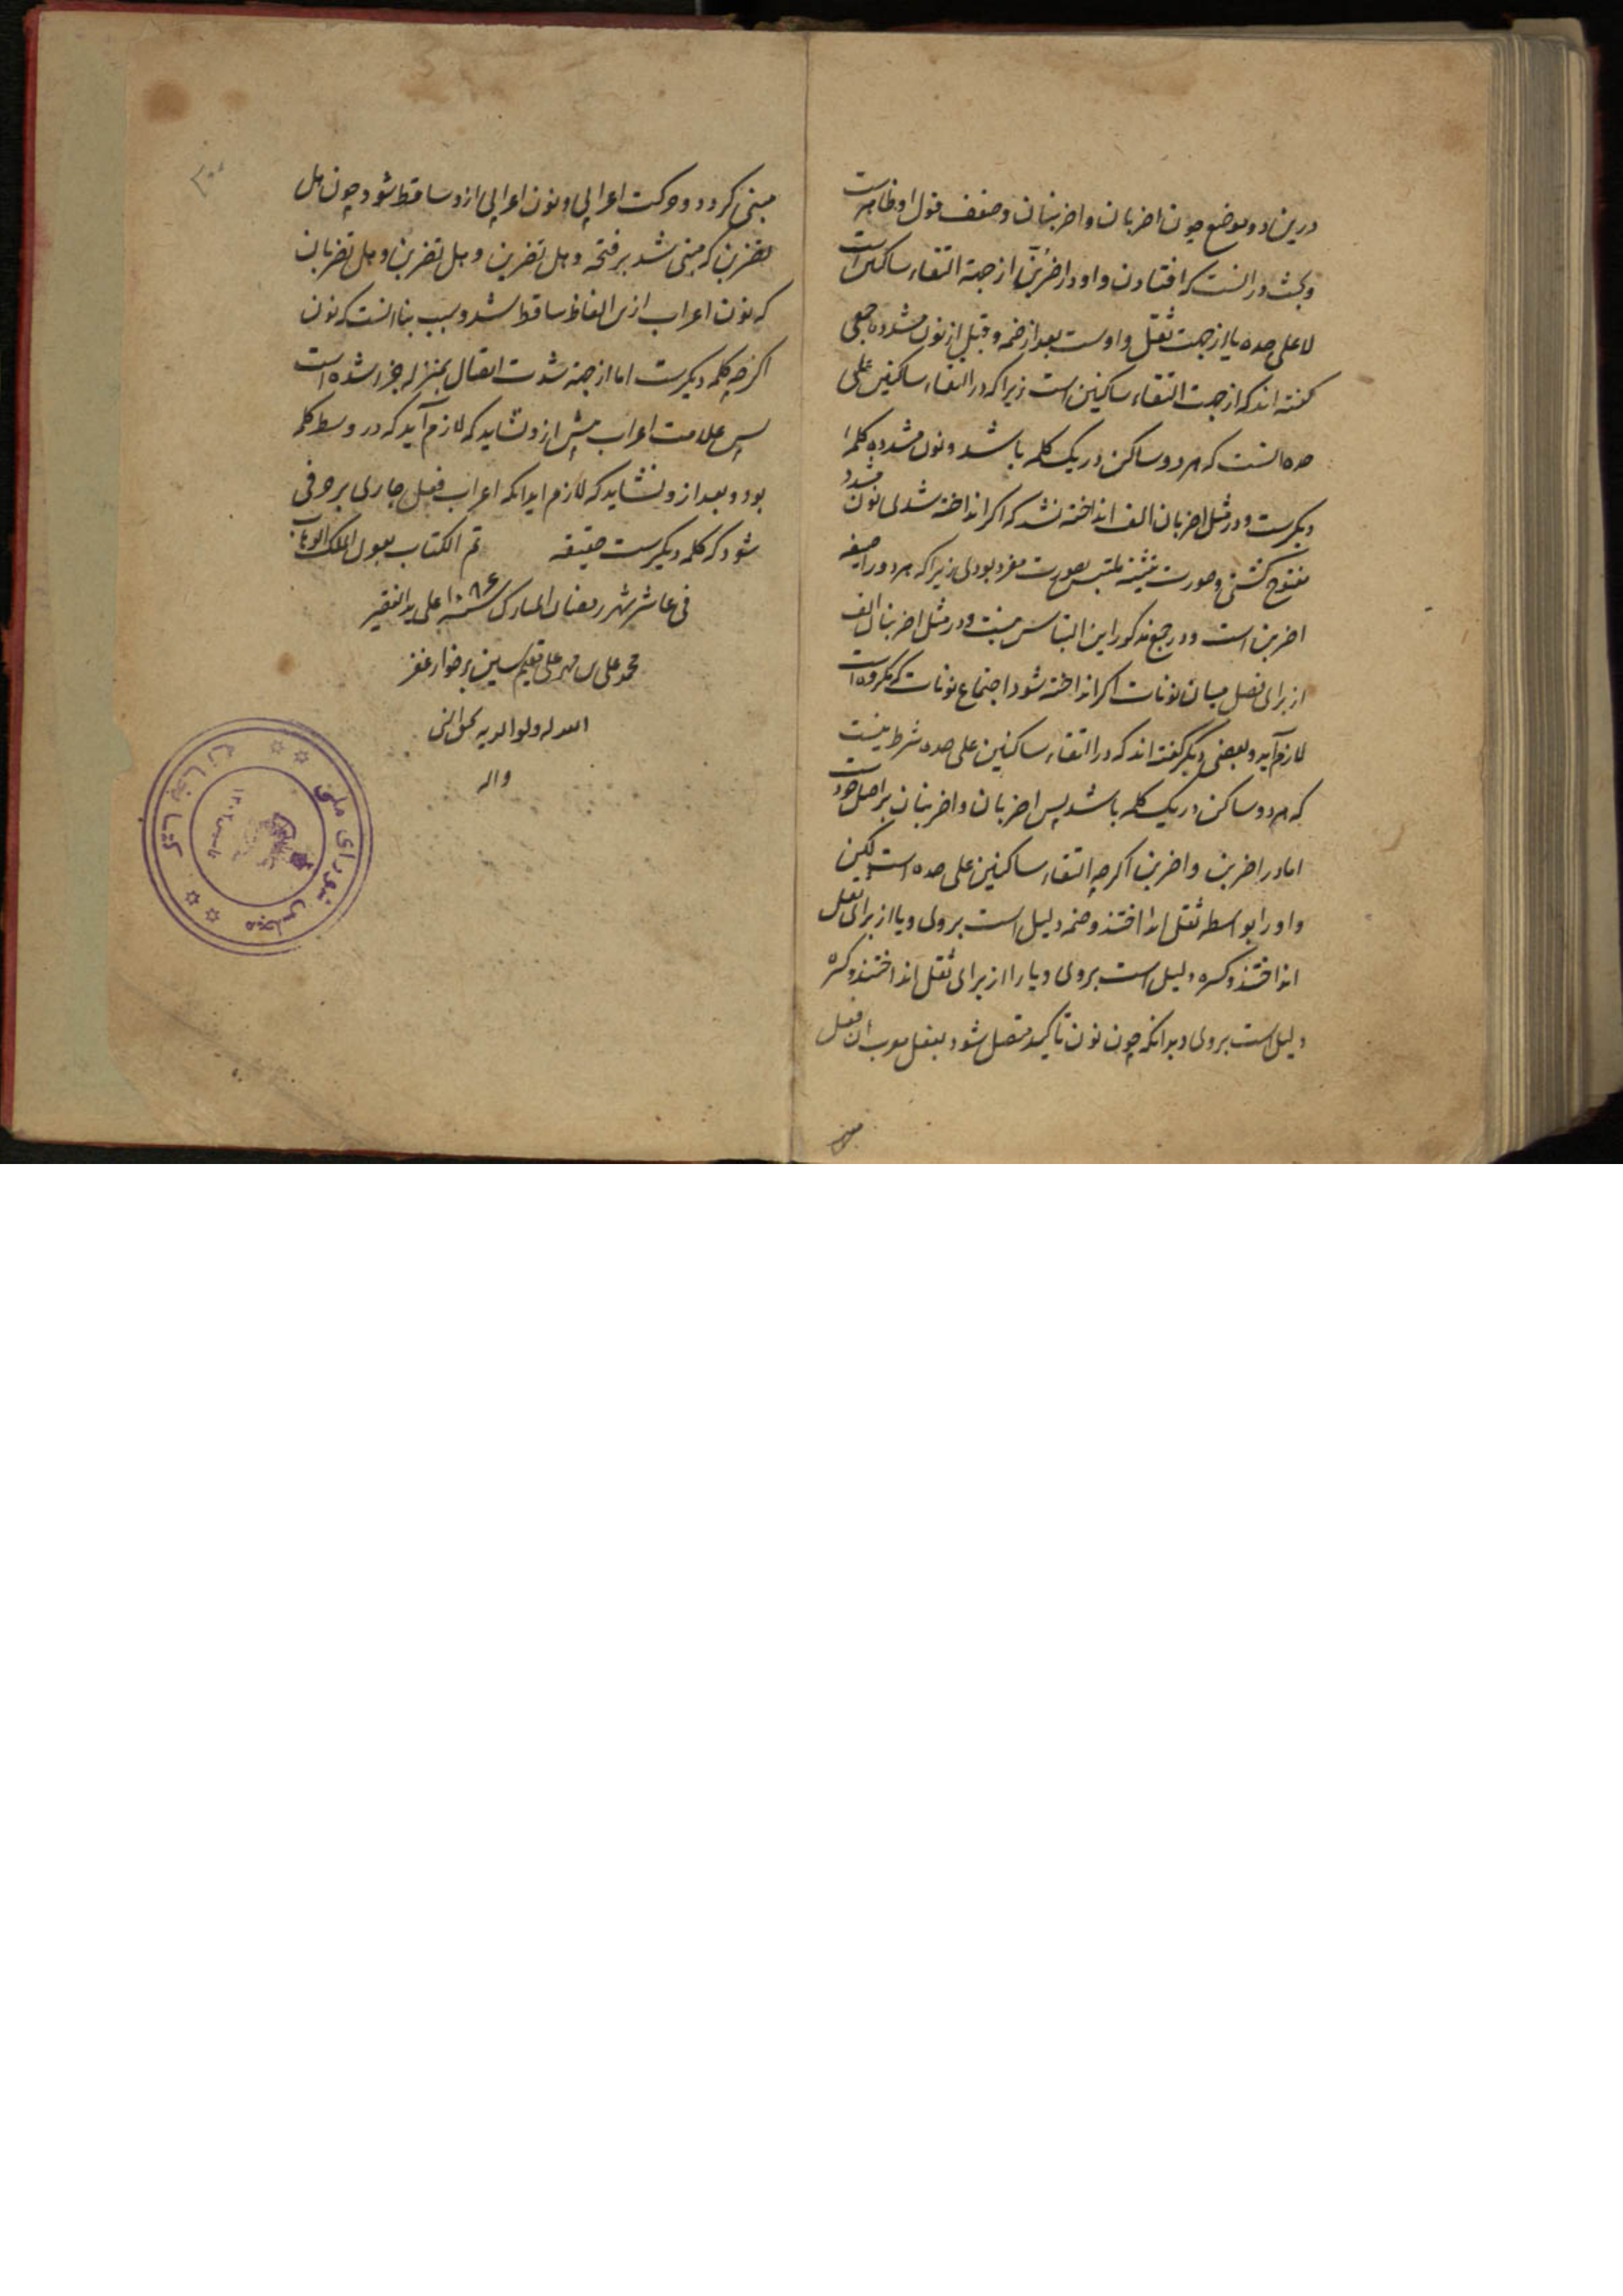 درین دو موضع چون اضربان و اضربنان و ضعف قول او ظاهرست
و بحث در انست که افتادن واو در اضربُنّ از جهة التقاء ساکنین است
لا علی حده یا از جهت ثقل واوست بعد از ضمه و قبل از نون مشدده جمعی
گفته اند که از جهت التقاء ساکنین است زیرا که در التقاء ساکنین علی
حده انست که هر دو ساکن در یک کلمه باشد و نون مشدده کلمهٔ
دیکرست و در مثل اضربان الف انداخته نشد که اکر انداخته شدی نون مشدد
مفتوح کشتی و صورت تثنیه ملتبس بصورت مفرد بودی زیرا که هر دو را صیغه
اضربن است و در جمع مذکور این التباس نیست و در مثل اضربنان الف
از برای فصل میان نونات اکر انداخته شود اجتماع نونات که مکروه است
لازم آید و بعضی دیگر گفته اند که در التقاء ساکنین علی حده شرط نیست
که هر دو ساکن در یک کلمه باشد پس اضربان و اضربنان بر اصل خودست
اما در اضربن و اضربن اکرچه التقاء ساکنین علی حده است لکین
واو را بواسطه ثقل انداختند و ضمه دلیل است بر وی و یا از برای ثقل
انداختند و کسره دلیل است بر وی و یا را از برای ثقل انداختند و کسره
دلیل است بر وی و بدانکه چون نون تاکید متصل شود بفعل معرب ان فعل
مبنی
مبنی کردد و حرکت اعرابی و نون اعرابی ازو ساقط شود چون هل
تضربن که مبنی شد بر فتحه و هل تضربن و هل تضربن و هل تضربان
که نون اعراب ازین الفاظ ساقط شد و سبب بنا انست که نون
اکرچه کلمه دیکرست اما از جهة شدت اتصال بمنزله جزء شده است
پس علامت اعراب پیش ازو نشاید که لازم آید که در وسط کلمه
بود و بعد ازو نشاید که لازم اید انکه اعراب فعل جاری بر حرفی
شود که کلمه دیکرست حقیقه تم الکتاب بعون الملک الوهاب
فی عاشر شهر رمضان المبارک سنه ۱۰۸۶ علی ید الفقیر
محمد علی بن مهر علی مقیم سین برخوار غفر
الله له ولوالدیه بحق النبی
واله
کتابخانه مجلس شورای ملی